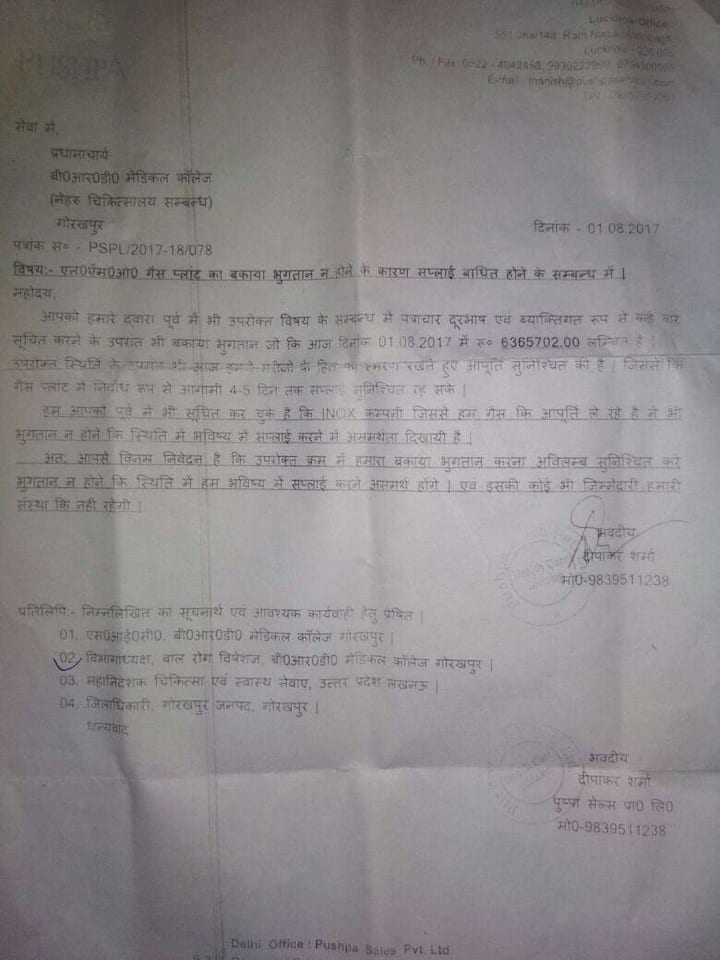 Lucknow Office:
551 Jha/148, Ram Nagar, Alambagh,
Lucknow - 226 005
Ph. / Fax: 0522 - 4042468, 9936222999
E-mail: manish@pushpa
PUSHPA
सेवा में,
प्रधानाचार्य
बी0आर0डी0 मेडिकल कॉलेज
(नेहरु चिकित्सालय सम्बन्ध)
गोरखपुर
दिनांक - 01.08.2017
पत्रांक स० - PSPL/2017-18/078
विषय:- एल0ऍम0ओ0 गैस प्लांट का बकाया भुगतान न होने के कारण सप्लाई बाधित होने के सम्बन्ध में |
महोदय,
आपको हमारे दवारा पूर्व में भी उपरोक्त विषय के सम्बन्ध में पत्राचार दूरभाष एवं व्याक्तिगत रूप से कई बार
सूचित करने के उपरांत भी बकाया भुगतान जो कि आज दिनांक 01.08.2017 में रू० 6365702.00 लम्बित है |
उपरोक्त स्थिति के उपरांत भी आज हमने मरीजो के हित का स्मरण रखते हुए आपूर्ति सुनिश्चित की है | जिससे कि
गैस प्लांट में निर्वाध रूप से आगामी 4-5 दिन तक सप्लाई सुनिश्चित रह सके |
हम आपको पूर्व में भी सूचित कर चुके है कि INOX कम्पनी जिससे हम गैस कि आपूर्ति ले रहे है ने भी
भुगतान न होने कि स्थिति में भविष्य में सप्लाई करने में असमर्थता दिखायी है |
अत: आपसे विनम्र निवेदन है कि उपरोक्त क्रम में हमारा बकाया भुगतान करना अविलम्ब सुनिश्चित करे
भुगतान न होने कि स्थिति में हम भविष्य में सप्लाई करने असमर्थ होंगे | एवं इसकी कोई भी जिम्मेदारी हमारी
संस्था कि नही रहेगी |
भवदीय
दीपांकर शर्मा
मो0-9839511238
प्रतिलिपि:- निम्नलिखित का सूचनार्थ एवं आवश्यक कार्यवाही हेतु प्रेषित |
01. एस0आई0सी0, बी0आर0डी0 मेडिकल कॉलेज गोरखपुर |
02. विभागाध्यक्ष, बाल रोग विषेशज, बी0आर0डी0 मेडिकल कॉलेज गोरखपुर |
03. महानिदेशक चिकित्सा एवं स्वास्थ सेवाए, उत्तर प्रदेश लखनऊ |
04. जिलाधिकारी, गोरखपुर जनपद, गोरखपुर |
धन्यवाद
भवदीय
दीपांकर शर्मा
पुष्पा सेल्स प्रा0 लि0
मो0-9839511238
Delhi Office : Pushpa Sales Pvt. Ltd.